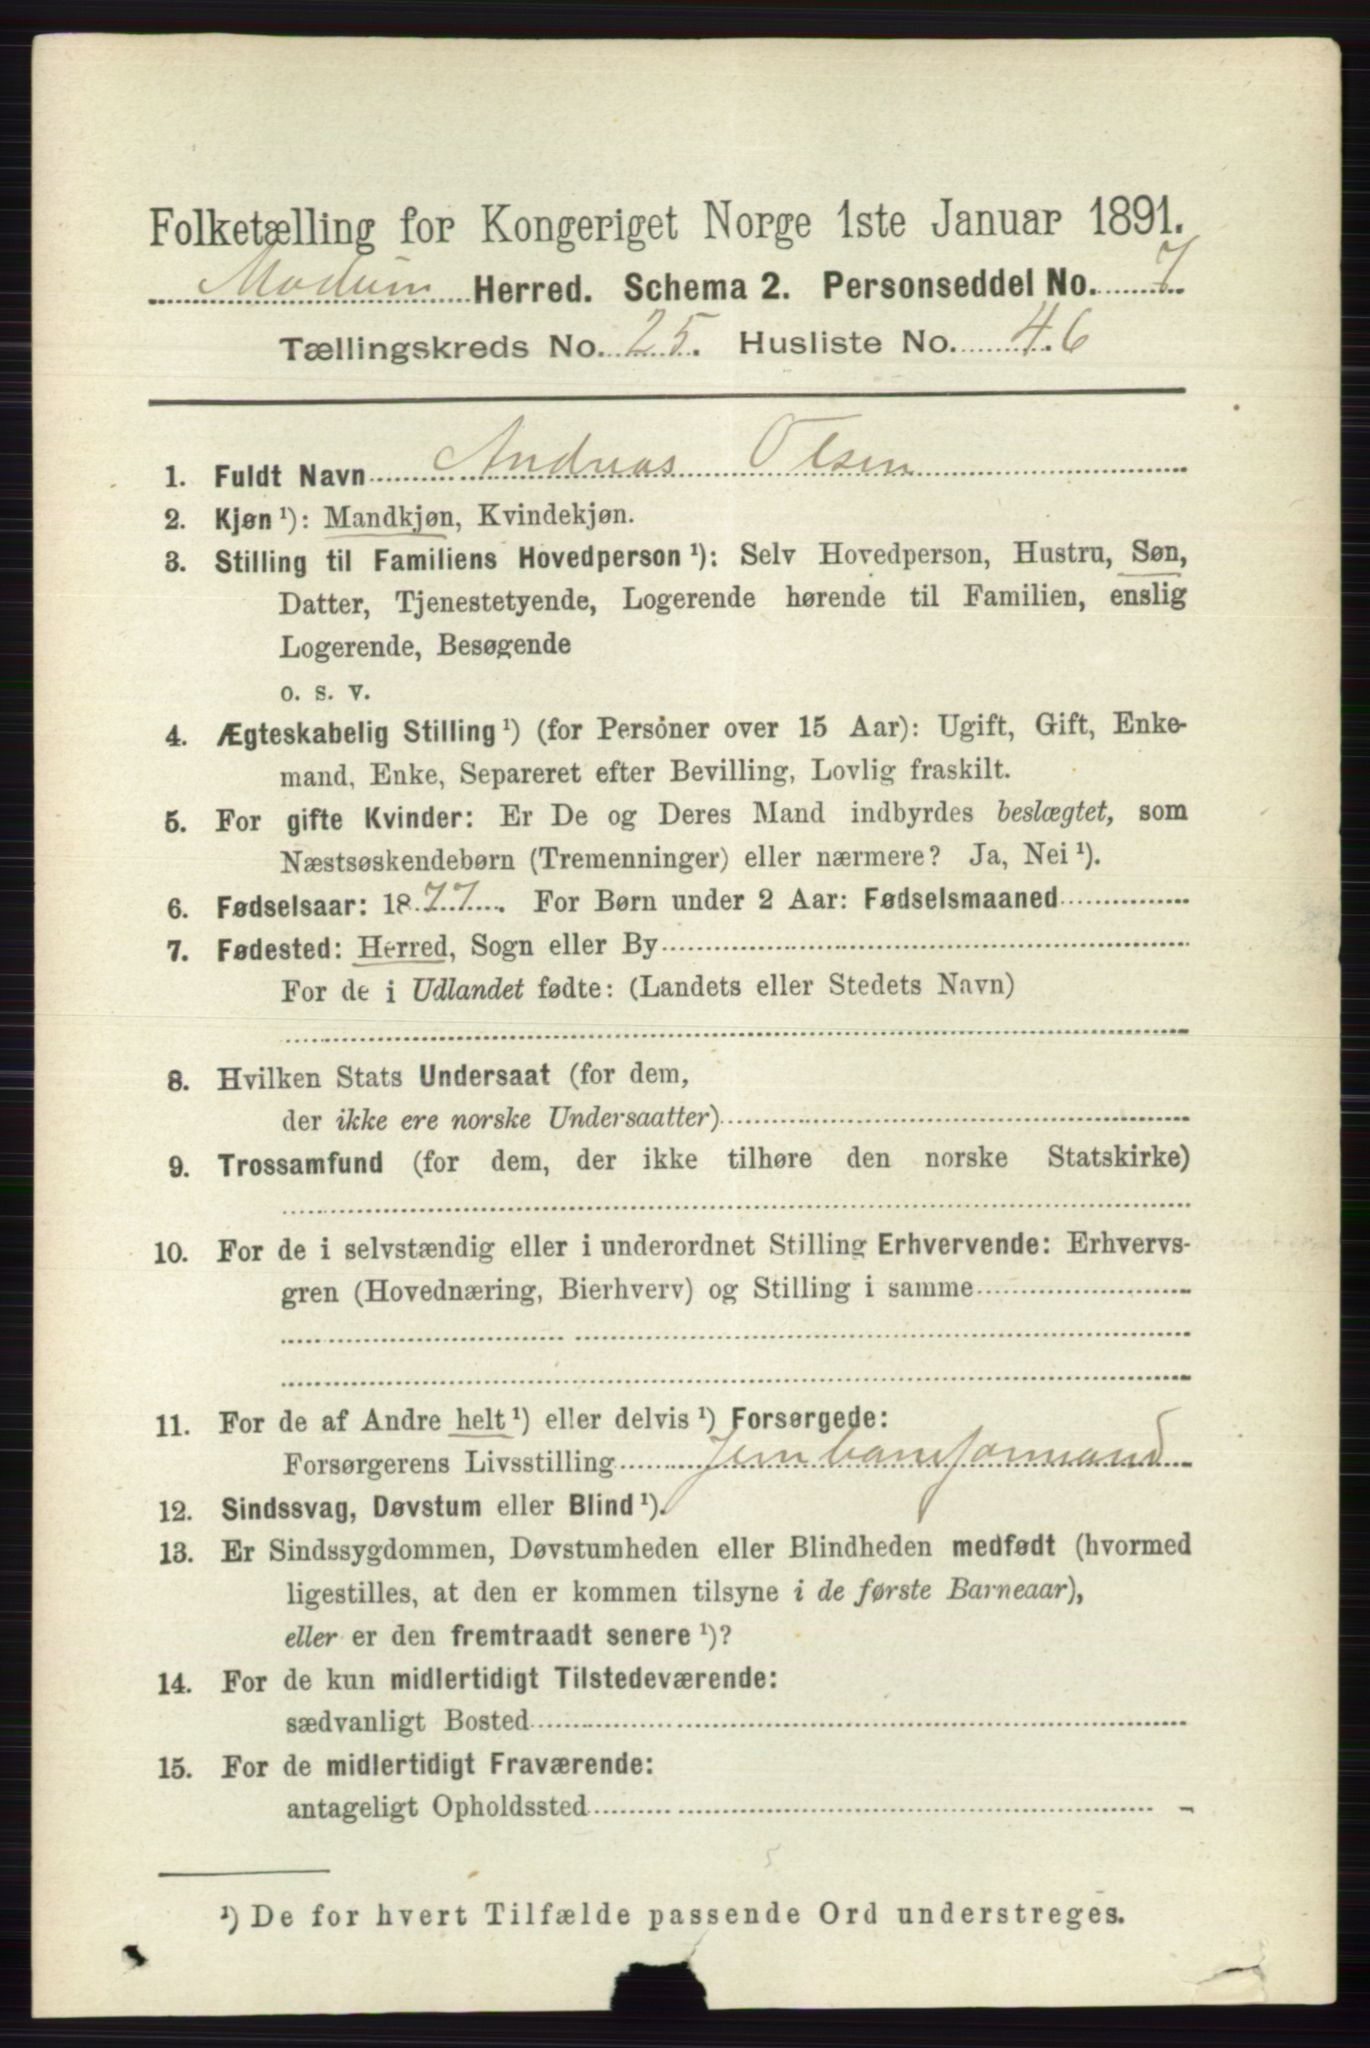 Folketælling for Kongeriget Norge 1ste Januar 1891.
Modum Herred. Schema 2. Personseddel No. 7
Tællingskreds No. 25. Husliste No. 46
1. Fuldt Navn Andreas Olsen
2. Kjøn ¹): Mandkjøn, Kvindekjøn.
3. Stilling til Familiens Hovedperson ¹): Selv Hovedperson, Hustru, Søn,
Datter, Tjenestetyende, Logerende hørende til Familien, enslig
Logerende, Besøgende
o. s. v.
4. Ægteskabelig Stilling ¹) (for Personer over 15 Aar): Ugift, Gift, Enke-
mand, Enke, Separeret efter Bevilling, Lovlig fraskilt.
5. For gifte Kvinder: Er De og Deres Mand indbyrdes beslægtet, som
Næstsøskendebørn (Tremenninger) eller nærmere? Ja, Nei ¹).
6. Fødselsaar: 1877. For Børn under 2 Aar: Fødselsmaaned
7. Fødested: Herred, Sogn eller By
For de i Udlandet fødte: (Landets eller Stedets Navn)
8. Hvilken Stats Undersaat (for dem,
der ikke ere norske Undersaatter)
9. Trossamfund (for dem, der ikke tilhøre den norske Statskirke)
10. For de i selvstændig eller i underordnet Stilling Erhvervende: Erhvervs-
gren (Hovednæring, Bierhverv) og Stilling i samme
11. For de af Andre helt ¹) eller delvis ¹) Forsørgede:
Forsørgerens Livsstilling Jernbaneformand
12. Sindssvag, Døvstum eller Blind ¹).
13. Er Sindssygdommen, Døvstumheden eller Blindheden medfødt (hvormed
ligestilles, at den er kommen tilsyne i de første Barneaar),
eller er den fremtraadt senere ¹)?
14. For de kun midlertidigt Tilstedeværende:
sædvanligt Bosted
15. For de midlertidigt Fraværende:
antageligt Opholdssted
¹) De for hvert Tilfælde passende Ord understreges.